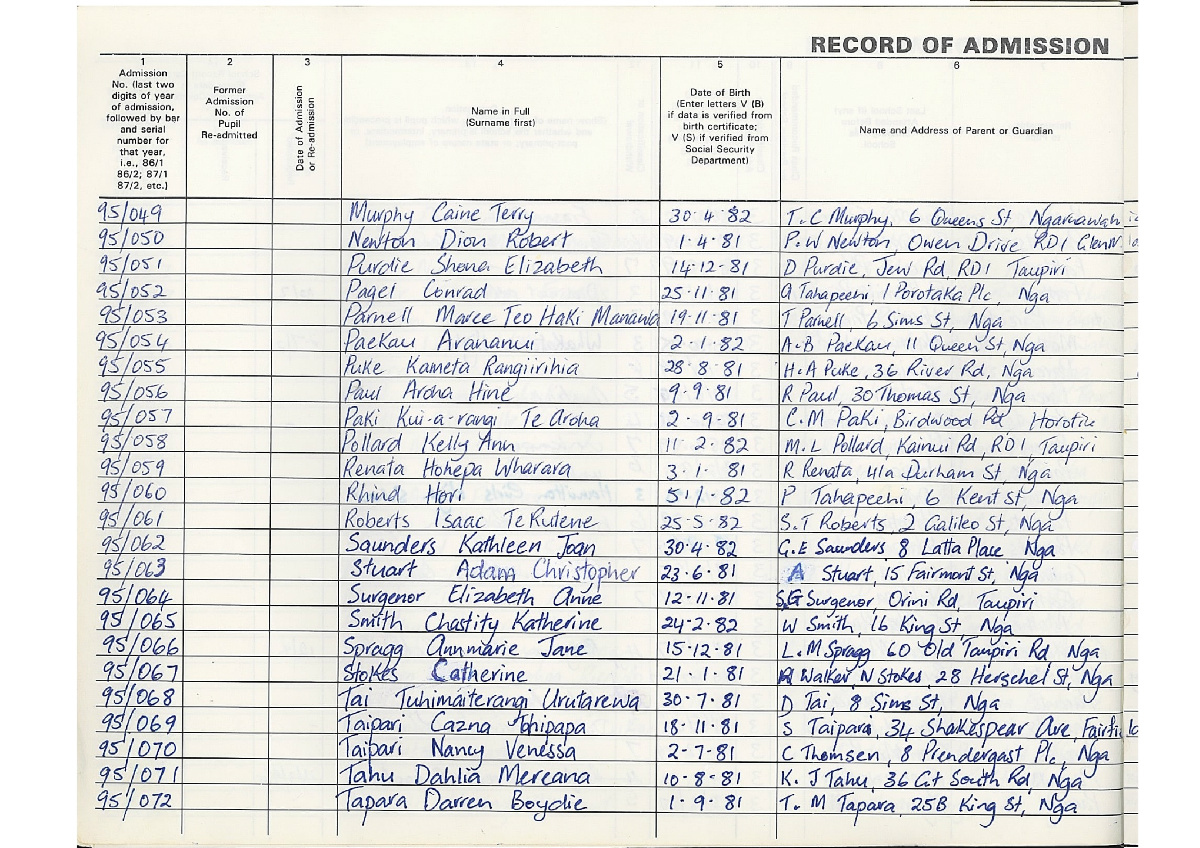 RECORD OF ADMISSION
1 2 3 4 5 6
Admission No. (last two digits of year of admission, followed by bar and serial number for that year, i.e., 86/1 86/2; 87/1 87/2, etc.)
Former Admission No. of Pupil Re-admitted
Date of Admission or Re-admission
Name in Full (Surname first)
Date of Birth (Enter letters V (B) if data is verified from birth certificate; V (S) if verified from Social Security Department)
Name and Address of Parent or Guardian
95/049 Murphy Caine Terry 30·4·82 T.C Murphy, 6 Queens St, Ngaruawah
95/050 Newton Dion Robert 1·4·81 P.W Newton, Owen Drive RD1 Glenm
95/051 Purdie Shona Elizabeth 14·12·81 D Purdie, Jew Rd, RD1 Taupiri
95/052 Pagel Conrad 25·11·81 G Tahapeehi 1 Porotaka Plc, Nga
95/053 Parnell Maree Teo Haki Manawa 19·11·81 T Parnell, 6 Sims St, Nga
95/054 Paekau Arananui 2·1·82 A·B Paekau, 11 Queen St, Nga
95/055 Puke Kameta Rangiirihia 28·8·81 H·A Puke, 36 River Rd, Nga
95/056 Paul Aroha Hine 9·9·81 R Paul, 30 Thomas St, Nga
95/057 Paki Kui-a-rangi Te Aroha 2·9·81 C.M Paki, Birdwood Rd Horotiu
95/058 Pollard Kelly Ann 11·2·82 M.L Pollard, Kainui Rd, RD1, Taupiri
95/059 Renata Hohepa Wharara 3·1·81 R Renata, 41a Durham St, Nga
95/060 Rhind Hori 5·1·82 P Tahapeehi, 6 Kent St, Nga
95/061 Roberts Isaac Te Rutene 25·5·82 S.T Roberts, 2 Galileo St, Nga
95/062 Saunders Kathleen Joan 30·4·82 G.E Saunders 8 Latta Place Nga
95/063 Stuart Adam Christopher 23·6·81 A Stuart, 15 Fairmont St, Nga
95/064 Surgenor Elizabeth Anne 12·11·81 S,G Surgenor, Orini Rd, Taupiri
95/065 Smith Chastity Katherine 24·2·82 W Smith, 16 King St, Nga
95/066 Spragg Annmarie Jane 15·12·81 L.M Spragg 60 Old Taupiri Rd, Nga
95/067 Stokes Catherine 21·1·81 R Walker, N Stokes, 28 Herschel St, Nga
95/068 Tai Tuhimaiterangi Urutarewa 30·7·81 D Tai, 8 Sims St, Nga
95/069 Taipari Cazna 18·11·81 S Taipara, 34 Shakespear Ave, Fairfi
95/070 Taipari Nancy Venessa 2·7·81 C Thomsen, 8 Prendergast Pl, Nga
95/071 Tahu Dahlia Mereana 10·8·81 K.J Tahu, 36 Gt South Rd, Nga
95/072 Tapara Darren Boydie 1·9·81 T.M Tapara, 25B King St, Nga